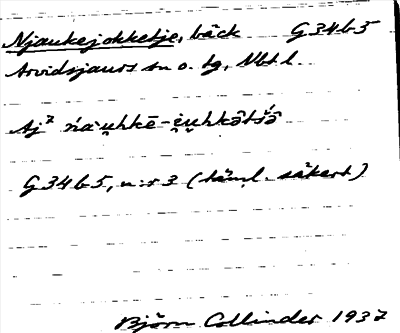 Njaukejokketje, bäck G34b5
Arvidsjaurs sn o. tg, Vbt l.
Aj² ńa·u̯hkē-i̯u̯hkə̑tšə̑
G34b5, n:r 3 (täml. säkert)
Björn Collinder 1937